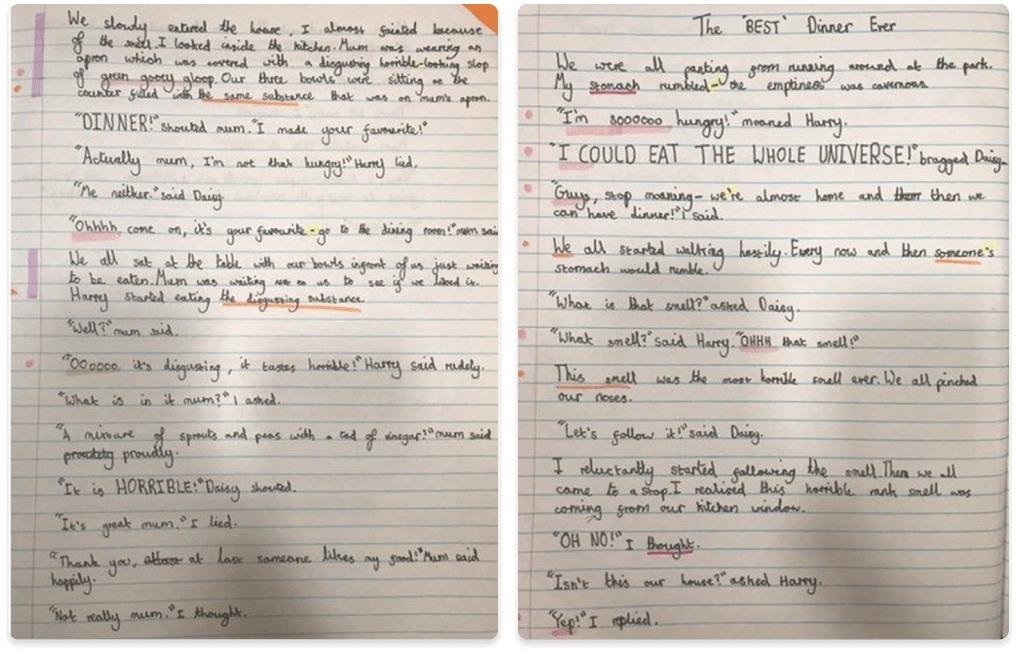 We slowly entered the house, I almost fainted because
of the smell. I looked inside the kitchen. Mum was wearing an
apron which was covered with a disgusting horrible-looking slop
of green gooey gloop. Our three bowls were sitting on the
counter filled with the same substance that was on mum's apron.
"DINNER!" shouted mum. "I made your favourite!"
"Actually mum, I'm not that hungry!" Harry lied.
"Me neither." said Daisy.
"Ohhhh come on, it's your favourite - go to the dining room!" mum said
We all sat at the table with our bowls infront of us just waiting
to be eaten. Mum was waiting on us to see if we liked it.
Harry started eating the disgusting substance.
"Well?" mum said.
"OOoooo it's disgusting, it tastes horrible!" Harry said rudely.
"What is in it mum?" I asked.
"A mixture of sprouts and peas with a tad of vinegar!" mum said
proudly.
"It is HORRIBLE!" Daisy shouted.
"It's great mum." I lied.
"Thank you, at last someone likes my food!" Mum said
happily.
"Not really mum." I thought.
The 'BEST' Dinner Ever
We were all panting from running around at the park.
My stomach rumbled - the emptiness was cavernous.
"I'm soooooo hungry!" moaned Harry.
"I COULD EAT THE WHOLE UNIVERSE!" bragged Daisy.
"Guys, stop moaning - we're almost home and then we
can have dinner!" I said.
We all started walking hastily. Every now and then someone's
stomach would rumble.
"What is that smell?" asked Daisy.
"What smell?" said Harry. "OHHH that smell!"
This smell was the most horrible smell ever. We all pinched
our noses.
"Let's follow it!" said Daisy.
I reluctantly started following the smell. Then we all
came to a stop. I realised this horrible rank smell was
coming from our kitchen window.
"OH NO!" I thought.
"Isn't this our house?" asked Harry.
"Yep!" I replied.